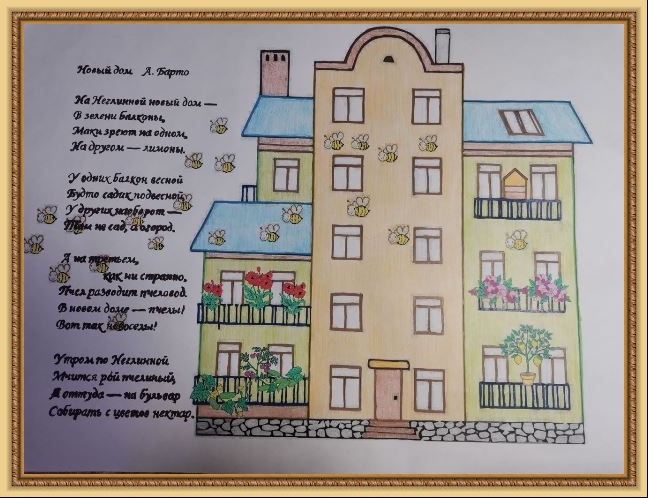 Новый дом А. Барто
На Неглинной новый дом —
В зелени балконы,
Маки зреют на одном,
На другом — лимоны.
У одних балкон весной
Будто садик подвесной,
У других наоборот —
Там не сад, а огород.
А на третьем,
как ни странно,
Пчел разводит пчеловод.
В новом доме — пчелы!
Вот так новоселы!
Утром по Неглинной
Мчится рой пчелиный,
А оттуда — на бульвар
Собирать с цветов нектар.